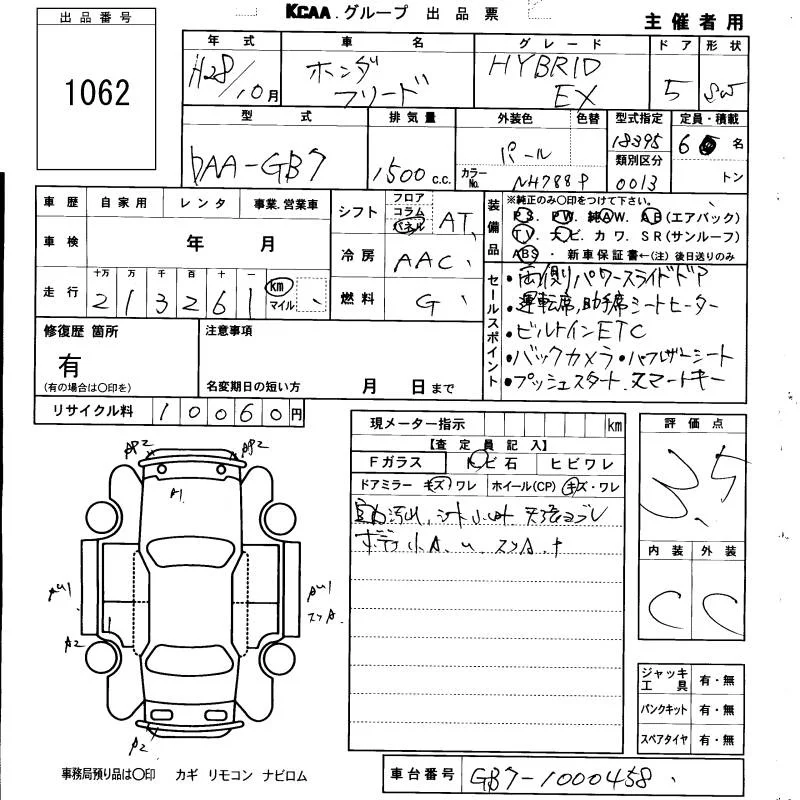 KCAA グループ 出品票
主催者用
出品番号
1062
年式 車名 グレード ドア 形状
H28/10月 ホンダ フリード HYBRID EX 5 SW
型式 排気量 外装色 色替 型式指定 定員・積載
DAA-GB7 1500 c.c. パール 18395 6 名
カラーNo. NH788P 類別区分 0013 トン
車歴 自家用 レンタ 事業.営業車
シフト フロア コラム パネル AT
装備品 ※純正のみ○印をつけて下さい。
PS. PW. 純AW. AB(エアバック)
TV. ナビ. カワ. SR(サンルーフ)
ABS ・ 新車保証書←(注)後日送りのみ
車検 年 月
冷房 AAC
走行 十万 万 千 百 十 一 km マイル
2 1 3 2 6 1
燃料 G
セールスポイント
・両側パワースライドドア
・運転席,助手席シートヒーター
・ビルトインETC
・バックカメラ・ハーフレザーシート
・プッシュスタート.スマートキー
修復歴 箇所
有
(有の場合は○印を)
注意事項
名変期日の短い方 月 日まで
リサイクル料 10060円
現メーター指示 km
【査定員記入】
Fガラス トビ石 ヒビワレ
ドアミラー キズ/ワレ ホイール(CP) キズ・ワレ
ボディ小A.U.
評価点
3.5
内装 外装
C C
A1
A2
A2
ジャッキ工具 有・無
パンクキット 有・無
スペアタイヤ 有・無
事務局預り品は○印 カギ リモコン ナビロム
車台番号 GB7-1000458